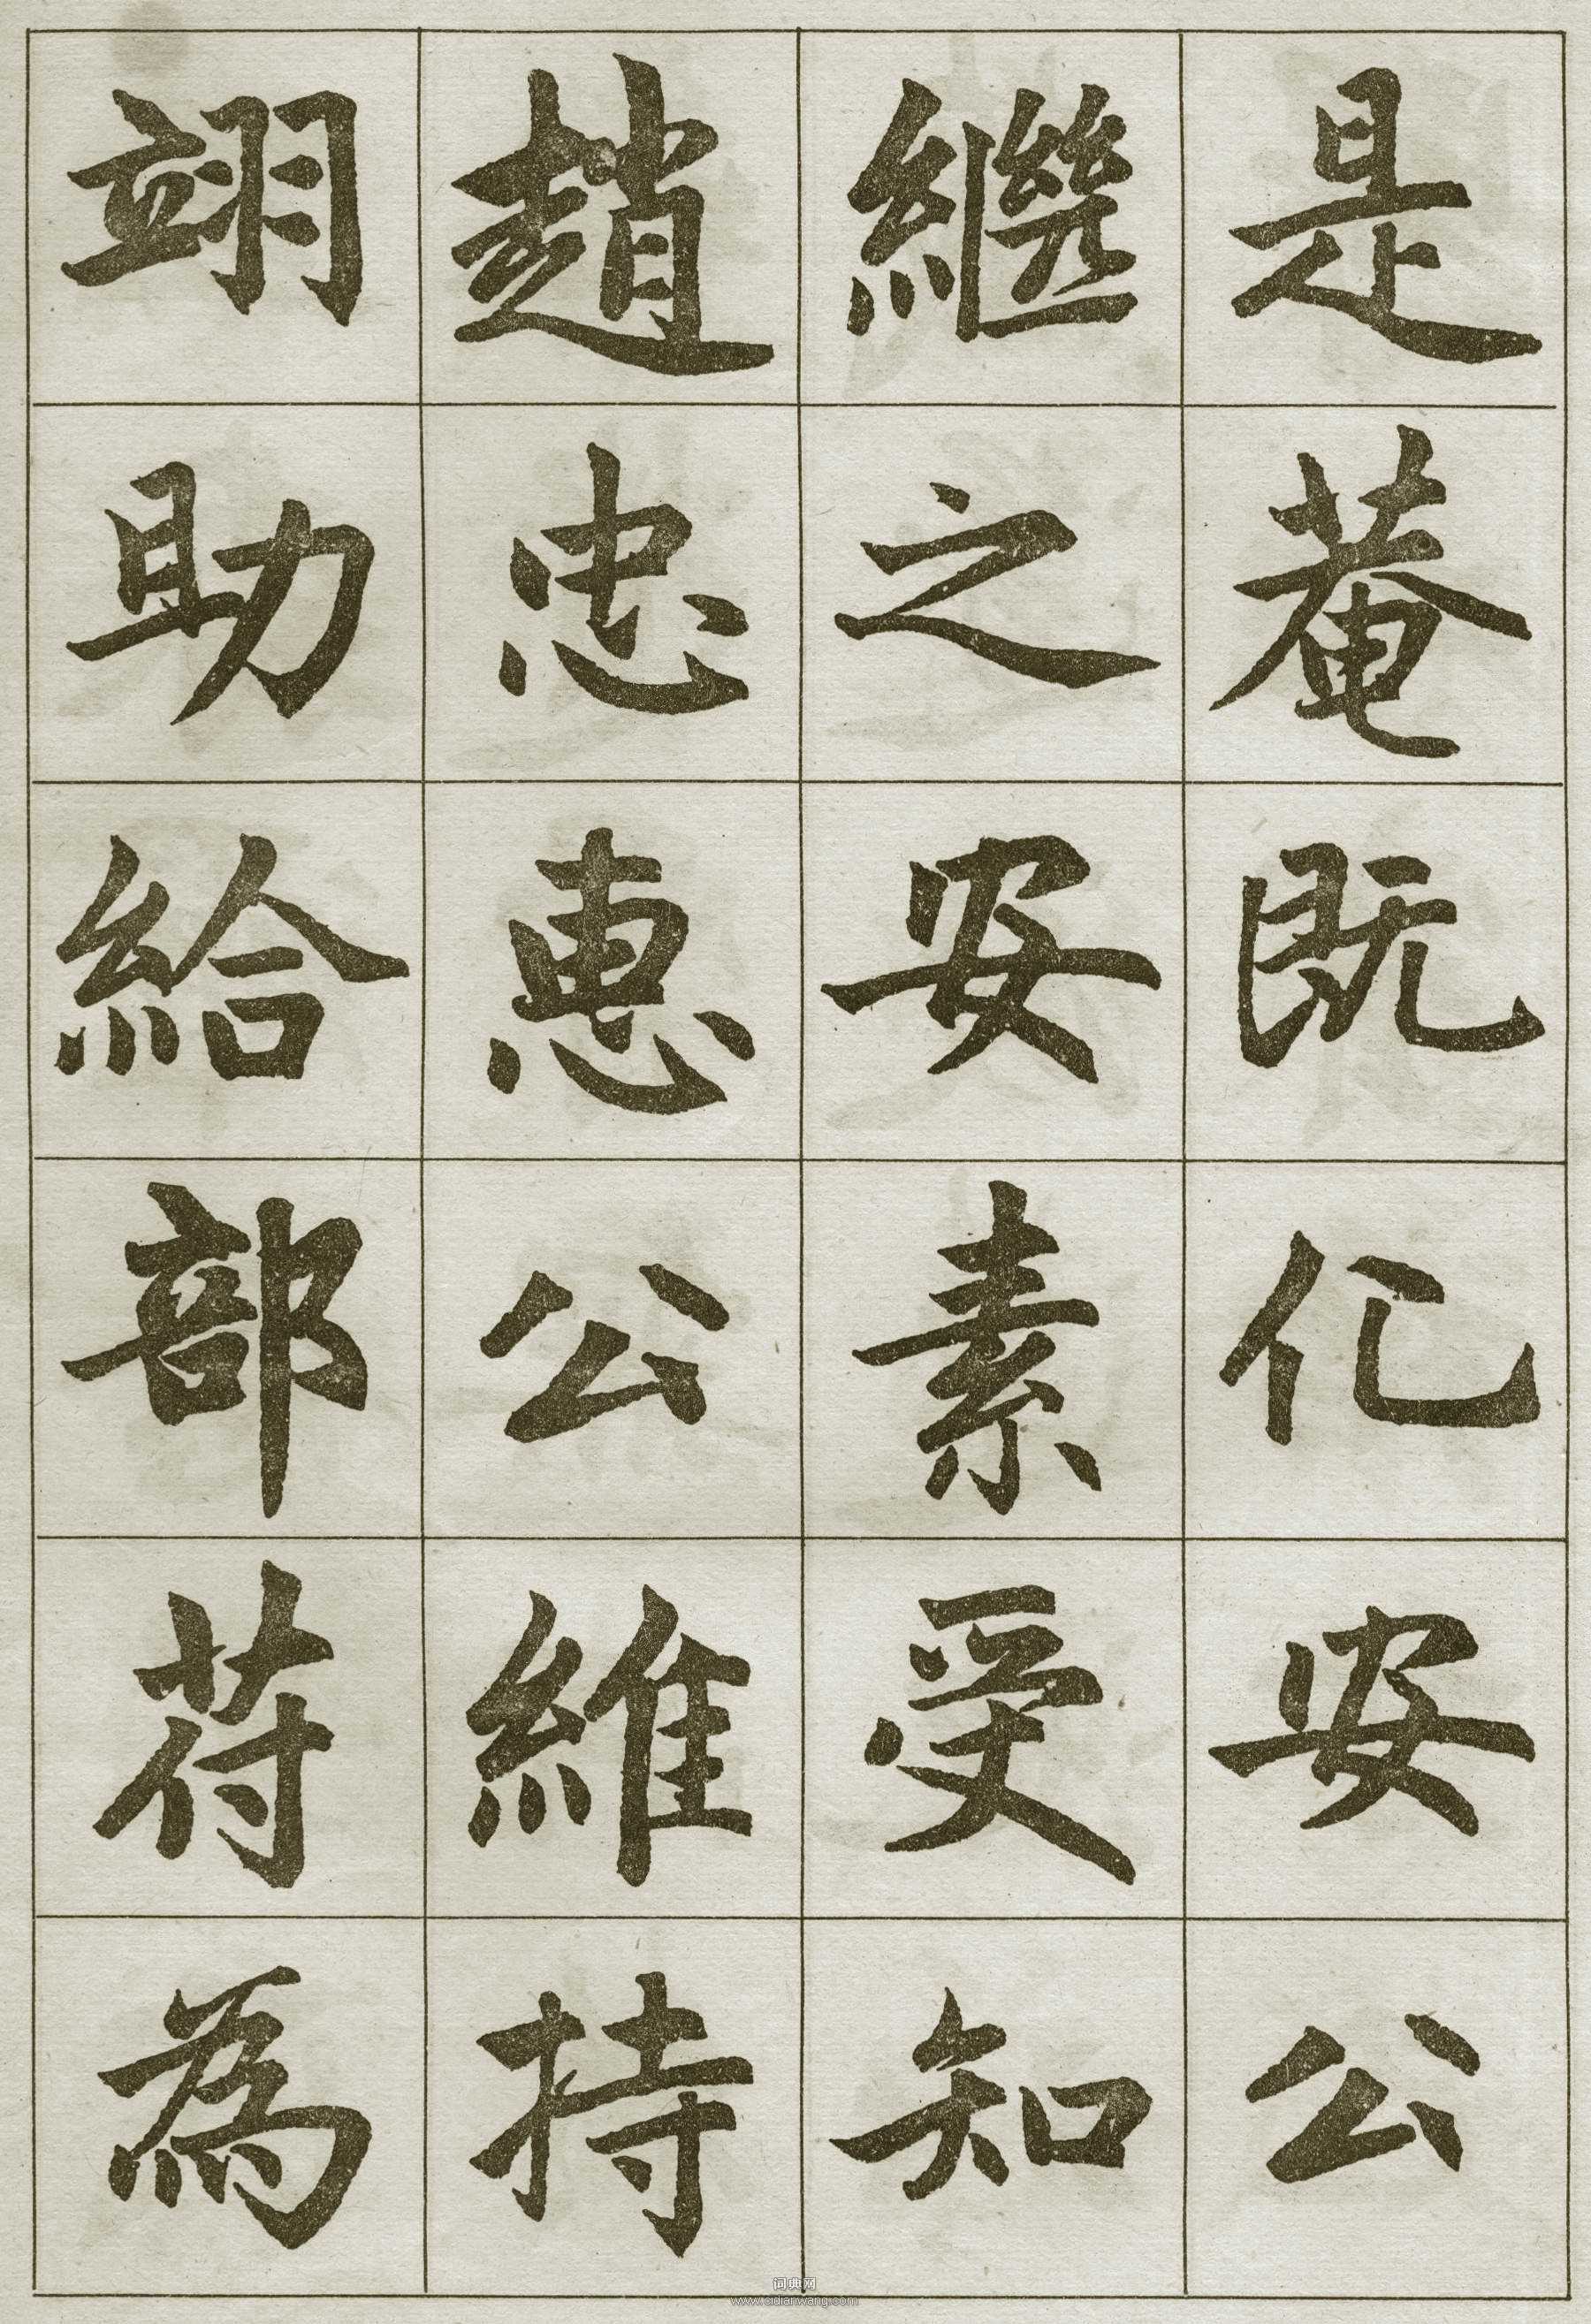 是菴既化安公
繼之安素受知
趙忠惠公維持
翊助給部符為
词典网
www.cidianwang.com